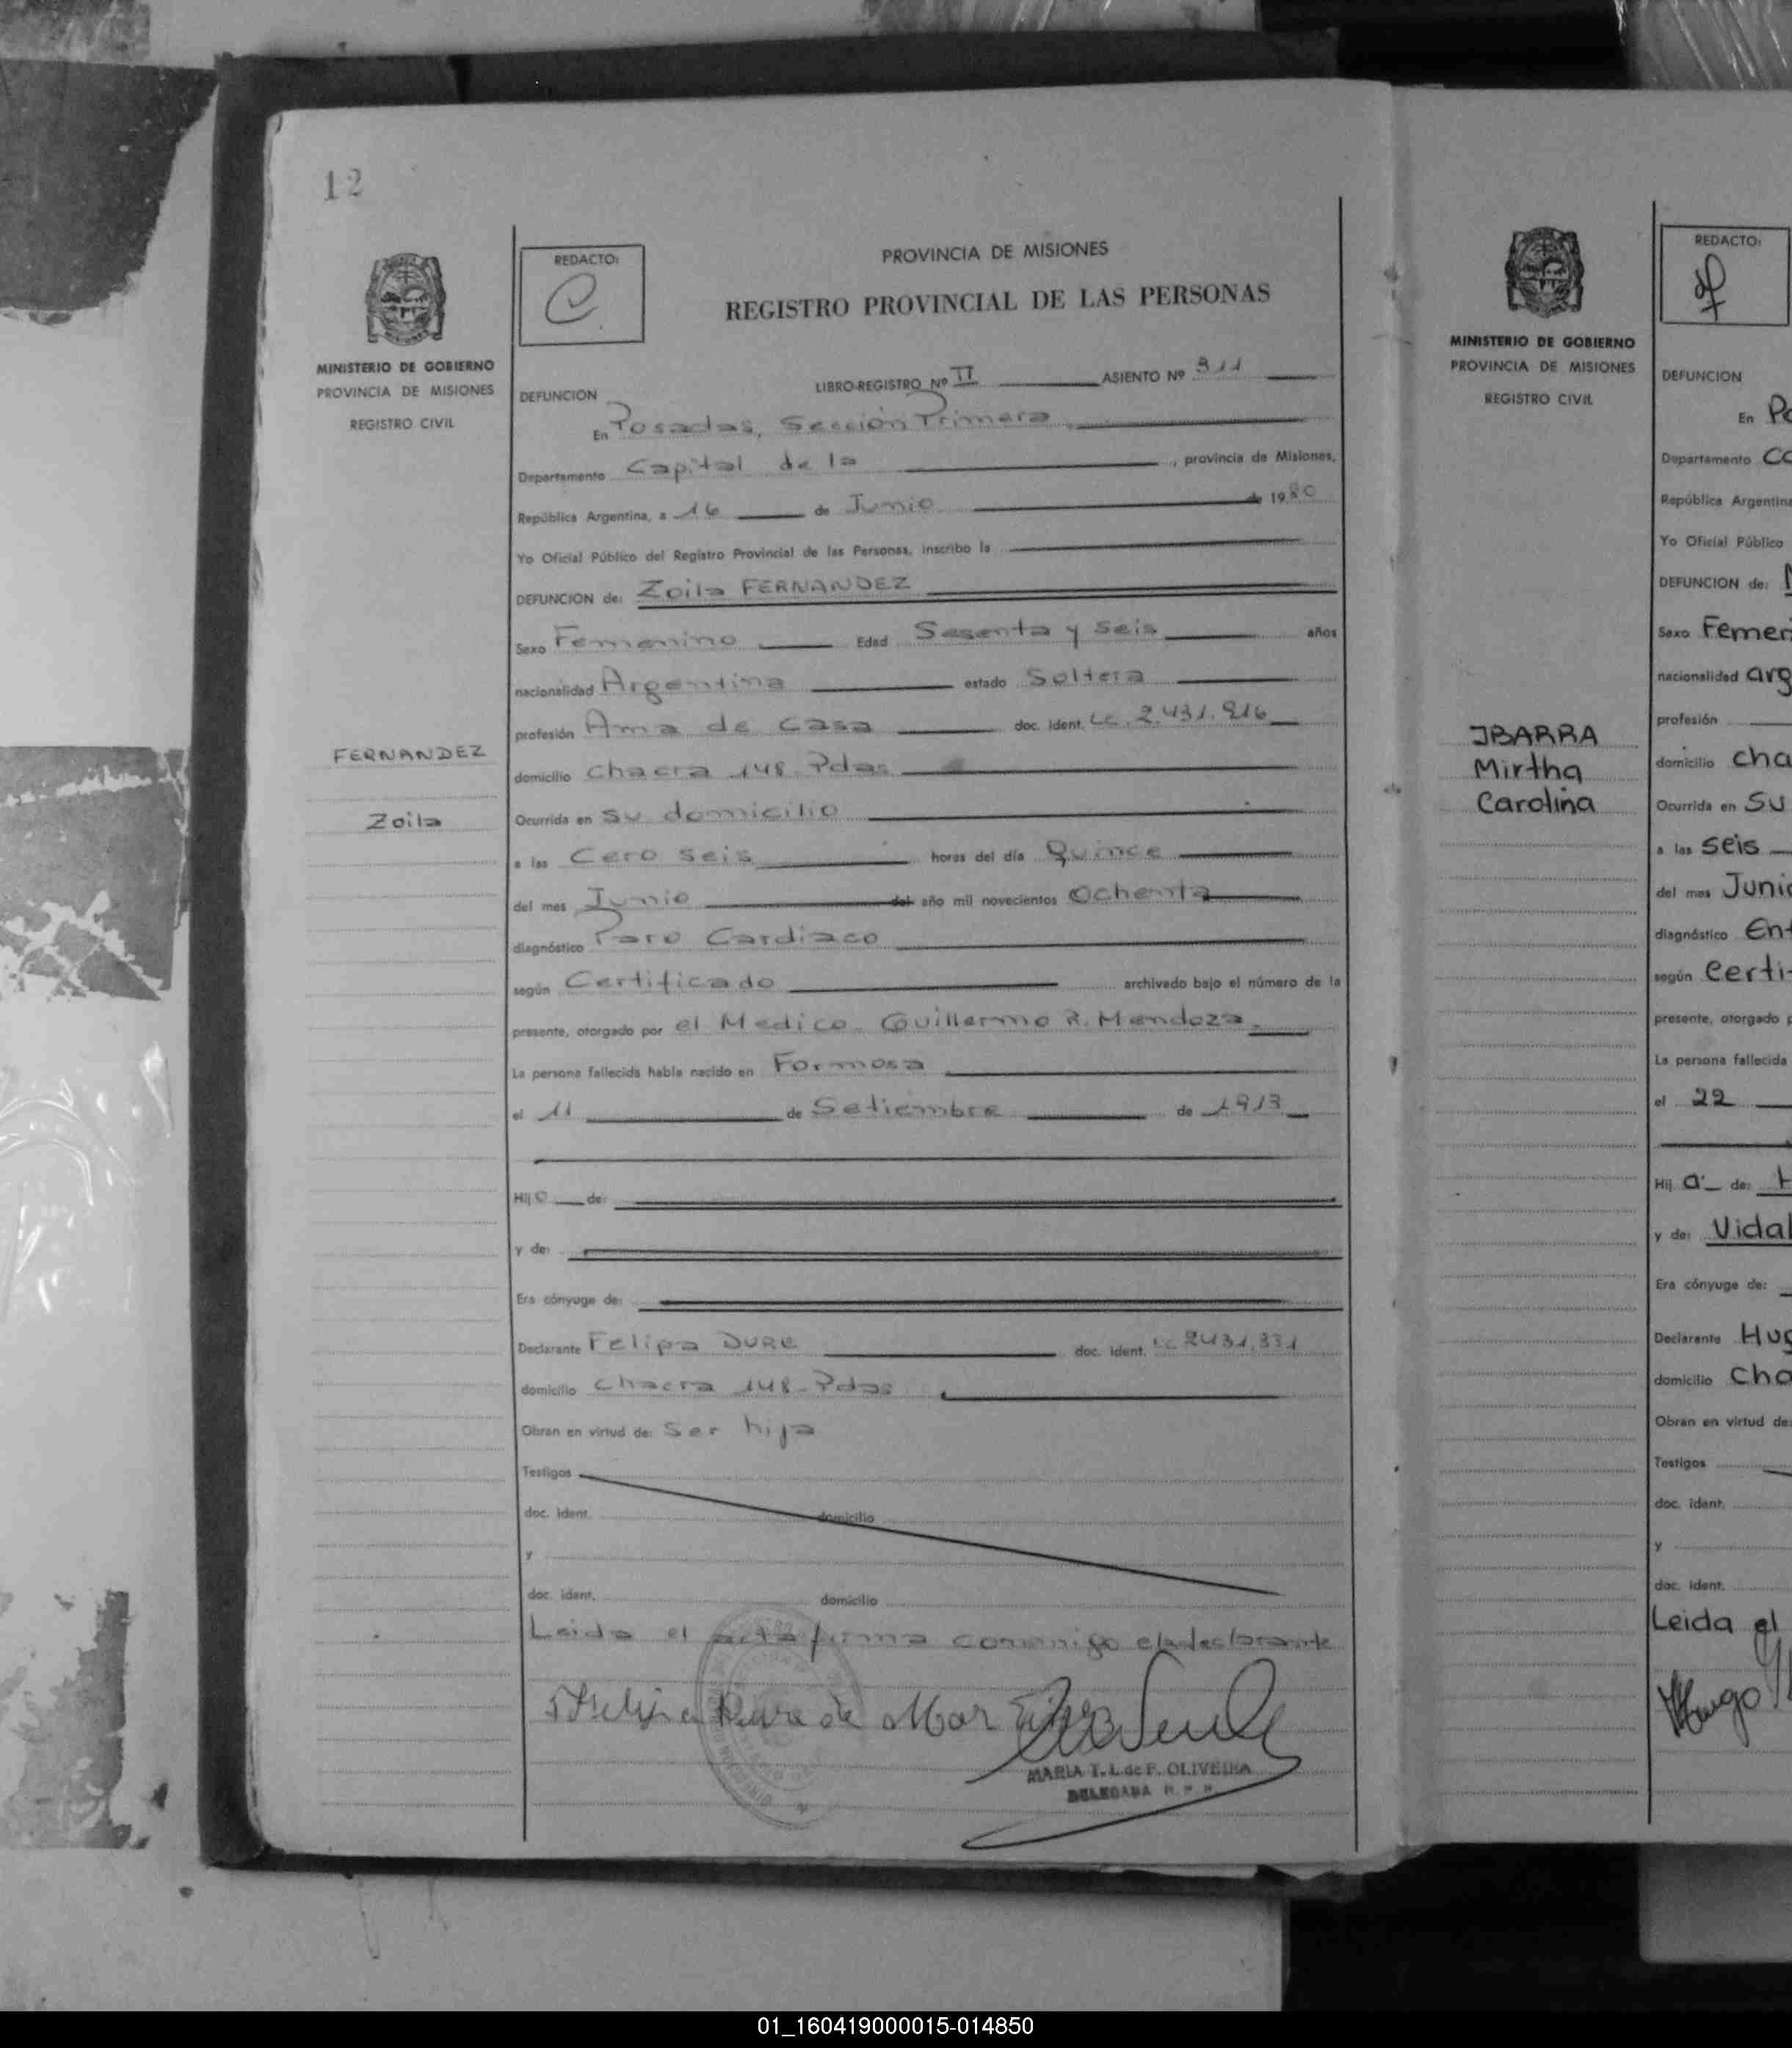 12
MINISTERIO DE GOBIERNO
PROVINCIA DE MISIONES
REGISTRO CIVIL
FERNANDEZ
Zoila
REDACTO:
C.
PROVINCIA DE MISIONES
REGISTRO PROVINCIAL DE LAS PERSONAS
LIBRO-REGISTRO Nº II ASIENTO Nº 311
DEFUNCION
En Posadas, Sección Primera
Departamento Capital de la , provincia de Misiones,
República Argentina, a 16 de Junio de 1980
Yo Oficial Público del Registro Provincial de las Personas, inscribo la
DEFUNCION de: Zoila FERNANDEZ
Sexo Femenino Edad Sesenta y seis años
nacionalidad Argentina estado Soltera
profesión Ama de casa doc. ident. LC. 2.431.916
domicilio chacra 148. Pdas
Ocurrida en su domicilio
a las Cero seis horas del día Quince
del mes Junio del año mil novecientos Ochenta
diagnóstico Paro Cardiaco
según Certificado archivado bajo el número de la
presente, otorgado por el Medico Guillermo R. Mendoza.
La persona fallecida había nacido en Formosa
el 11 de Setiembre de 1913
Hij o de:
y de:
Era cónyuge de:
Declarante Felipa DURE doc. ident. LC 2431.331
domicilio chacra 148- Pdas
Obran en virtud de: Ser hija
Testigos
doc. ident. domicilio
y
doc. ident. domicilio
Leida el acta firma conmigo el declarante
Felipa Dure de Mar
MARIA T. I. de F. OLIVEIRA
DELEGADA R. P. P.
MINISTERIO DE GOBIERNO
PROVINCIA DE MISIONES
REGISTRO CIVIL
IBARRA
Mirtha
Carolina
REDACTO:
DEFUNCION
En Po
Departamento Ca
República Argentina
Yo Oficial Público
DEFUNCION de:
Sexo Femen
nacionalidad arg
profesión
domicilio cha
Ocurrida en su
a las seis
del mes Junio
diagnóstico
según Certi
presente, otorgado p
La persona fallecida
el 22
Hij a de:
y de: Vidal
Era cónyuge de:
Declarante Hug
domicilio cha
Obran en virtud de:
Testigos
doc. ident.
y
doc. ident.
Leida el
Hugo
01_160419000015-014850